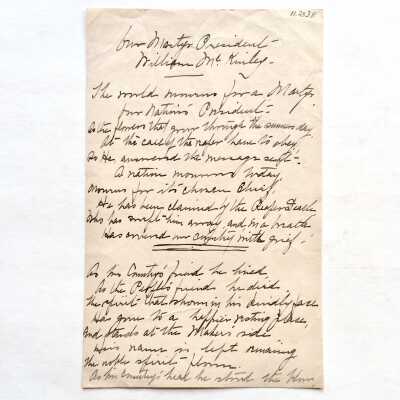 11.2038
Our Martyr President
William McKinley.
The world mourns for a Martyr,
Our Nation's President.
As the flowers that grow through the summer day
At the call of the reaper have to obey,
So He answered the message sent.
A nation mourns today,
mourns for its chosen Chief,
He has been claimed by the Reaper Death
Who has swept him away and in a breath
Has covered our Country with grief.
As his Country's friend he lived,
As the People's friend he died,
the spirit that shown in his kindly face
Has gone to a happier resting place,
And stands at the Maker's side
His name is left
the noble spirit flown.
As his Country's head he stood the